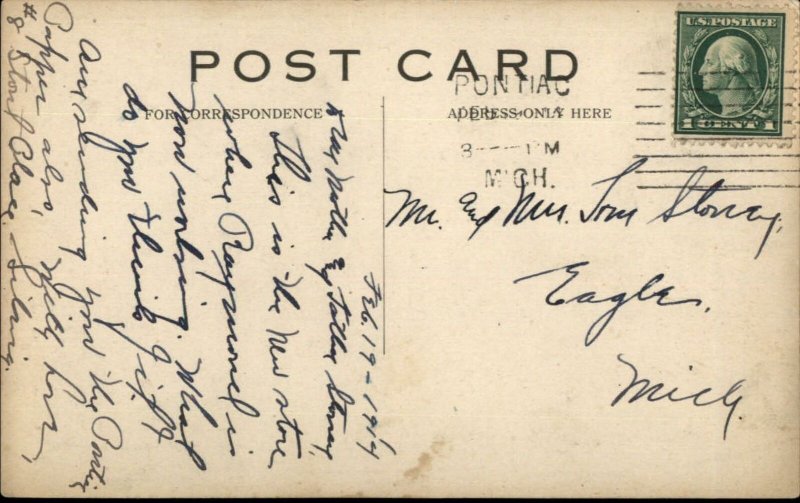 POST CARD
FOR CORRESPONDENCE
ADDRESS ONLY HERE
U.S. POSTAGE
1 CENT 1
PONTIAC
MICH.
Mr. and Mrs. Tom Storey,
Eagle,
Mich.
Feb. 19 - 1914
Dear Mother and Father Storey,
This is the new store
where Raymond is
now working. What
do you think of it
Am sending you the Pontiac
Paper also, With love,
# 8 Stout Place.